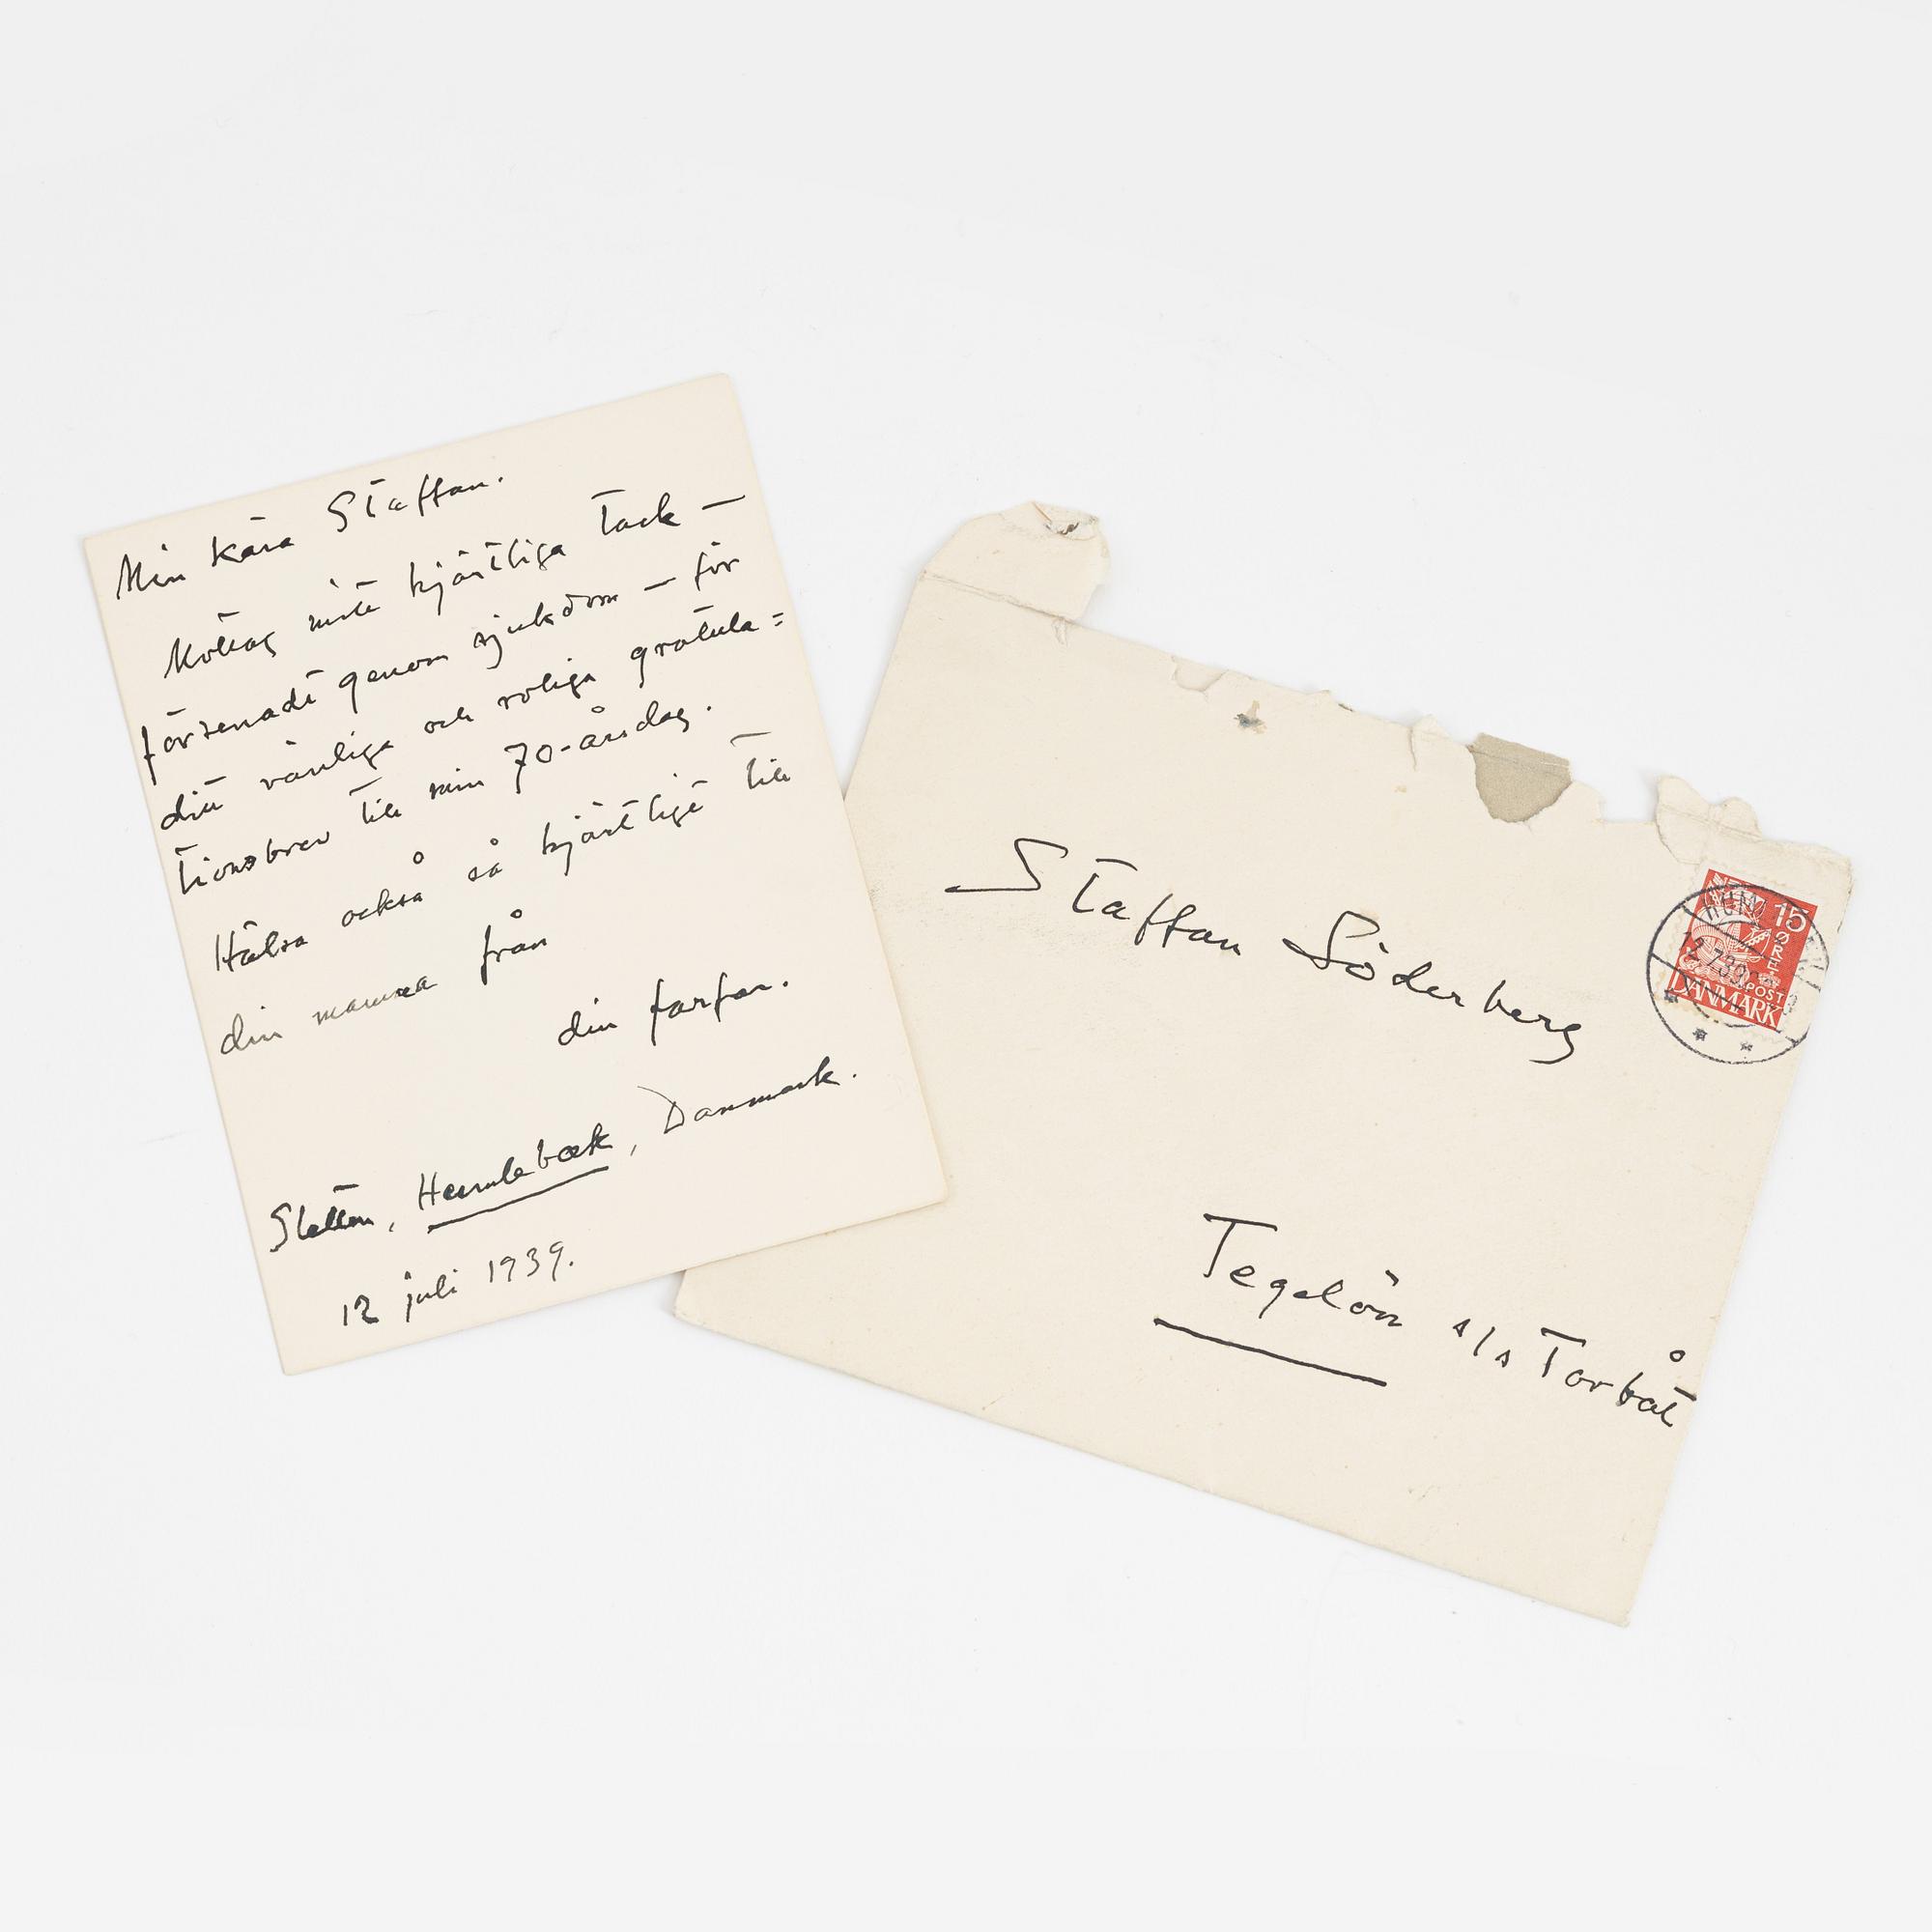 Min kära Staffan.
Mottag mitt hjärtliga tack —
försenadt genom sjukdom — för
ditt vänliga och roliga gratula=
tionsbrev till min 70-årsdag.
Hälsa också så hjärtligt till
din mamma från
din farfar.
Sletten, Humlebæk, Danmark.
12 juli 1939.
Staffan Söderberg
Tegelön s/s Torbåt
15
ØRE
POST
DANMARK
12.7.39